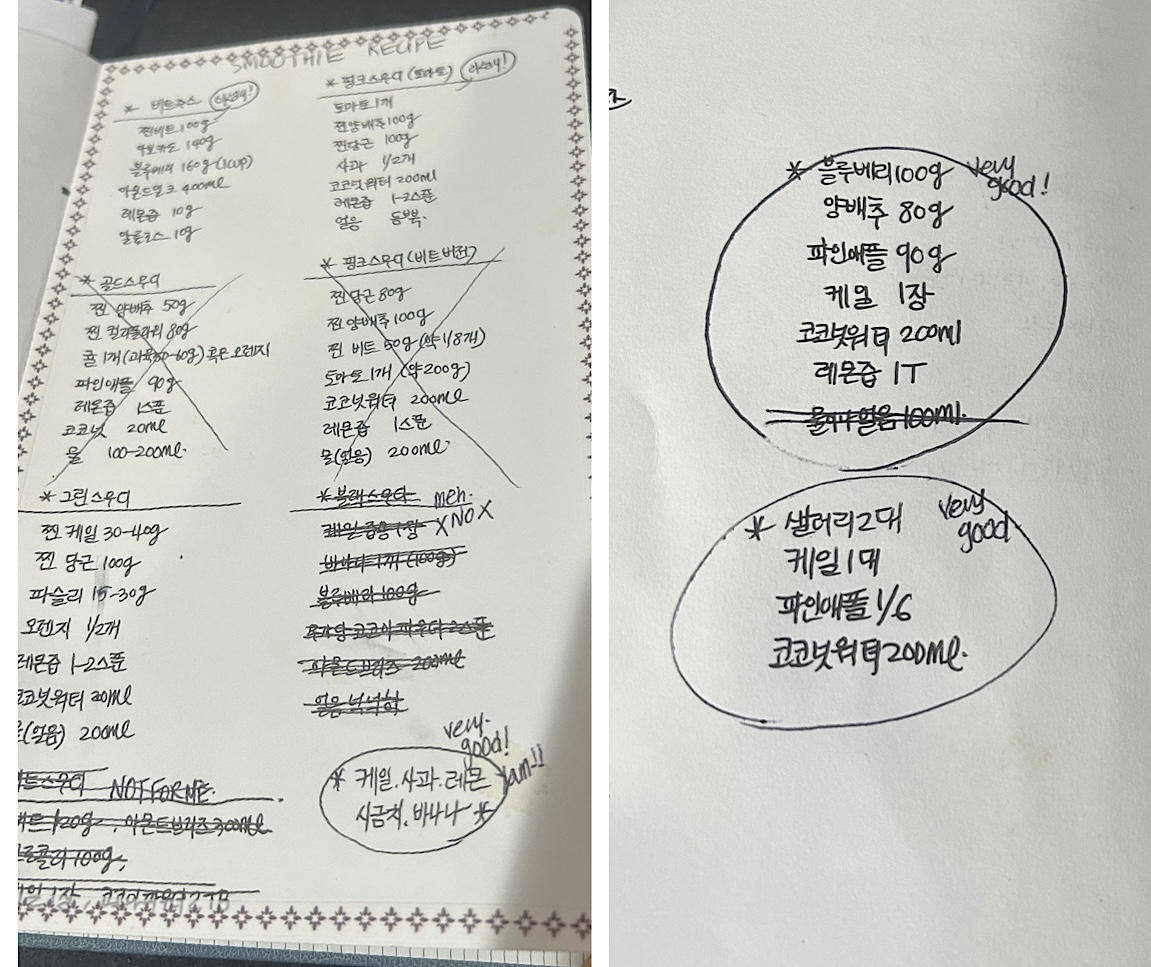 SMOOTHIE RECIPE
* 비트주스 아침!
찐비트 100g
아보카도 140g
블루베리 160g (1cup)
아몬드밀크 400ml
레몬즙 10g
알룰로스 10g
* 핑크스무디 (토마토) 아침!
토마토 1개
찐양배추 100g
찐당근 100g
사과 1/2개
코코넛워터 200ml
레몬즙 1-2스푼
얼음 듬뿍.
* 골드스무디
찐 양배추 50g
찐 컬리플라워 80g
귤 1개 (과육50-60g) 혹은 오렌지
파인애플 90g
레몬즙 1스푼
코코넛 20ml
물 100-200ml.
* 핑크스무디 (비트버전)
찐당근 80g
찐양배추 100g
찐 비트 50g (약 1/8개)
토마토 1개 (약 200g)
코코넛워터 200ml
레몬즙 1스푼
물(얼음) 200ml
* 그린스무디
찐 케일 30-40g
찐 당근 100g
파슬리 15-30g
오렌지 1/2개
레몬즙 1-2스푼
코코넛워터 20ml
(얼음) 200ml
* 블랙스무디 meh.
케일 1장 X NO X
바나나 1개 (100g)
블루베리 100g
무가당 코코아 파우더 2스푼
아몬드브리즈 200ml
얼음 넉넉히
트스무디 NOT FOR ME.
트 120g, 아몬드브리즈 300ml
로콜리 100g,
일 1장, 코코아파우더 2TB
very.
good!
Yam!!
* 케일. 사과. 레몬
시금치. 바나나 *
* 블루베리 100g very good!
양배추 80g
파인애플 90g
케일 1장
코코넛워터 200ml
레몬즙 1T
물이나 얼음 100ml.
* 샐러리 2대 very good
케일 1대
파인애플 1/6
코코넛워터 200ml.